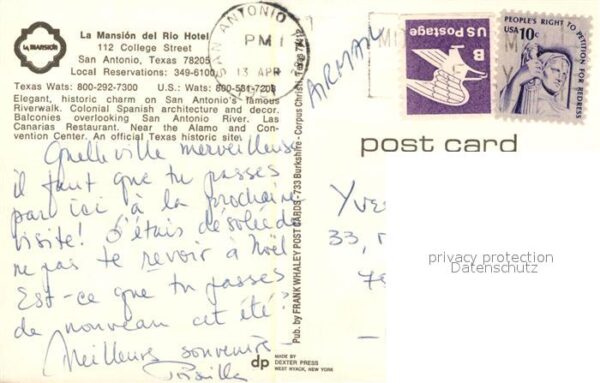 La Mansión del Rio Hotel
112 College Street
San Antonio, Texas 78205
Local Reservations: 349-6100
Texas Wats: 800-292-7300 U.S.: Wats: 800-531-7208
Elegant, historic charm on San Antonio's famous
Riverwalk. Colonial Spanish architecture and decor.
Balconies overlooking San Antonio River. Las
Canarias Restaurant. Near the Alamo and Con-
vention Center. An official Texas historic site.
LA MANSIÓN
Quelle ville merveilleuse
il faut que tu passes
par ici à la prochaine
visite! J'étais désolée de
ne pas te revoir à Noël
Est-ce que tu passes
de nouveau cet été?
Meilleurs souvenirs
Pub. by FRANK WHALEY POST CARDS - 733 Burkshire - Corpus Christi, Texas
dp MADE BY
DEXTER PRESS
WEST NYACK, NEW YORK
SAN ANTONIO
PM
13 APR
AIRMAIL
B
US Postage
PEOPLE'S RIGHT TO PETITION FOR REDRESS
USA 10c
post card
Yves
33,
privacy protection
Datenschutz